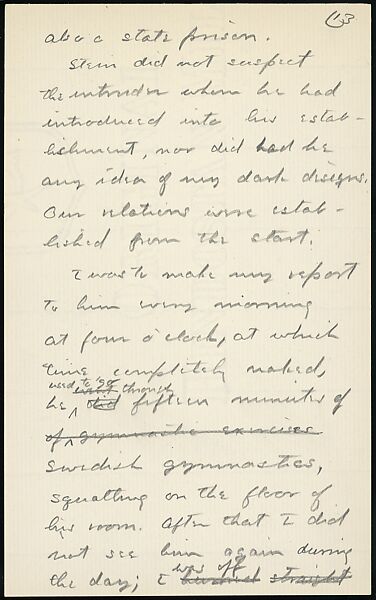 13
also a state prison.
Stein did not suspect
the intruder whom he had
introduced into his estab-
lishment, nor did had he
any idea of my dark designs.
Our relations were estab-
lished from the start.
I was to make my report
to him every morning
at four o'clock, at which
time completely naked,
used to go through
he did fifteen minutes of
of gymnastic exercises
Swedish gymnastics,
squatting on the floor of
his room. After that I did
not see him again during
was off
the day; I hurried straight